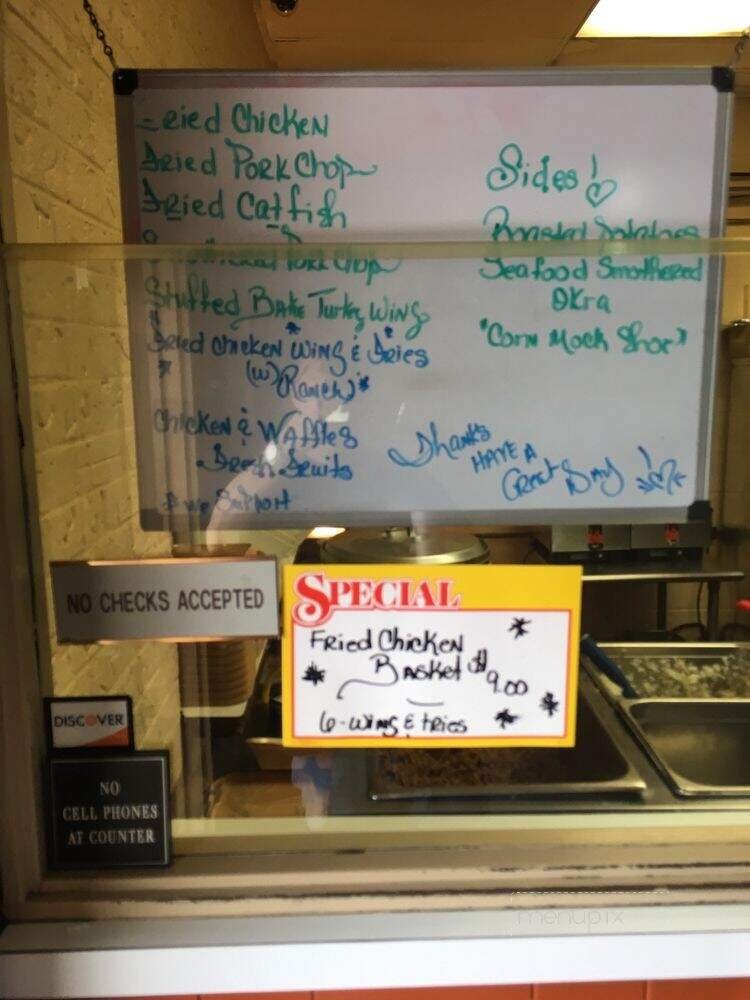 Fried Chicken
Fried Pork Chop
Fried Catfish
Pork Chop
Stuffed Bake Turkey Wing
Fried Chicken Wing & Fries
(w) Ranch
Chicken & Waffles
Fresh Fruits
we Support
Sides!
Roasted Potatoes
Seafood Smothered
Okra
"Corn Mock Shox"
Thanks
HAVE A
Great Day!
NO CHECKS ACCEPTED
SPECIAL
Fried Chicken
Basket $9.00
6-Wing & Fries
DISCOVER
NO
CELL PHONES
AT COUNTER
menupix